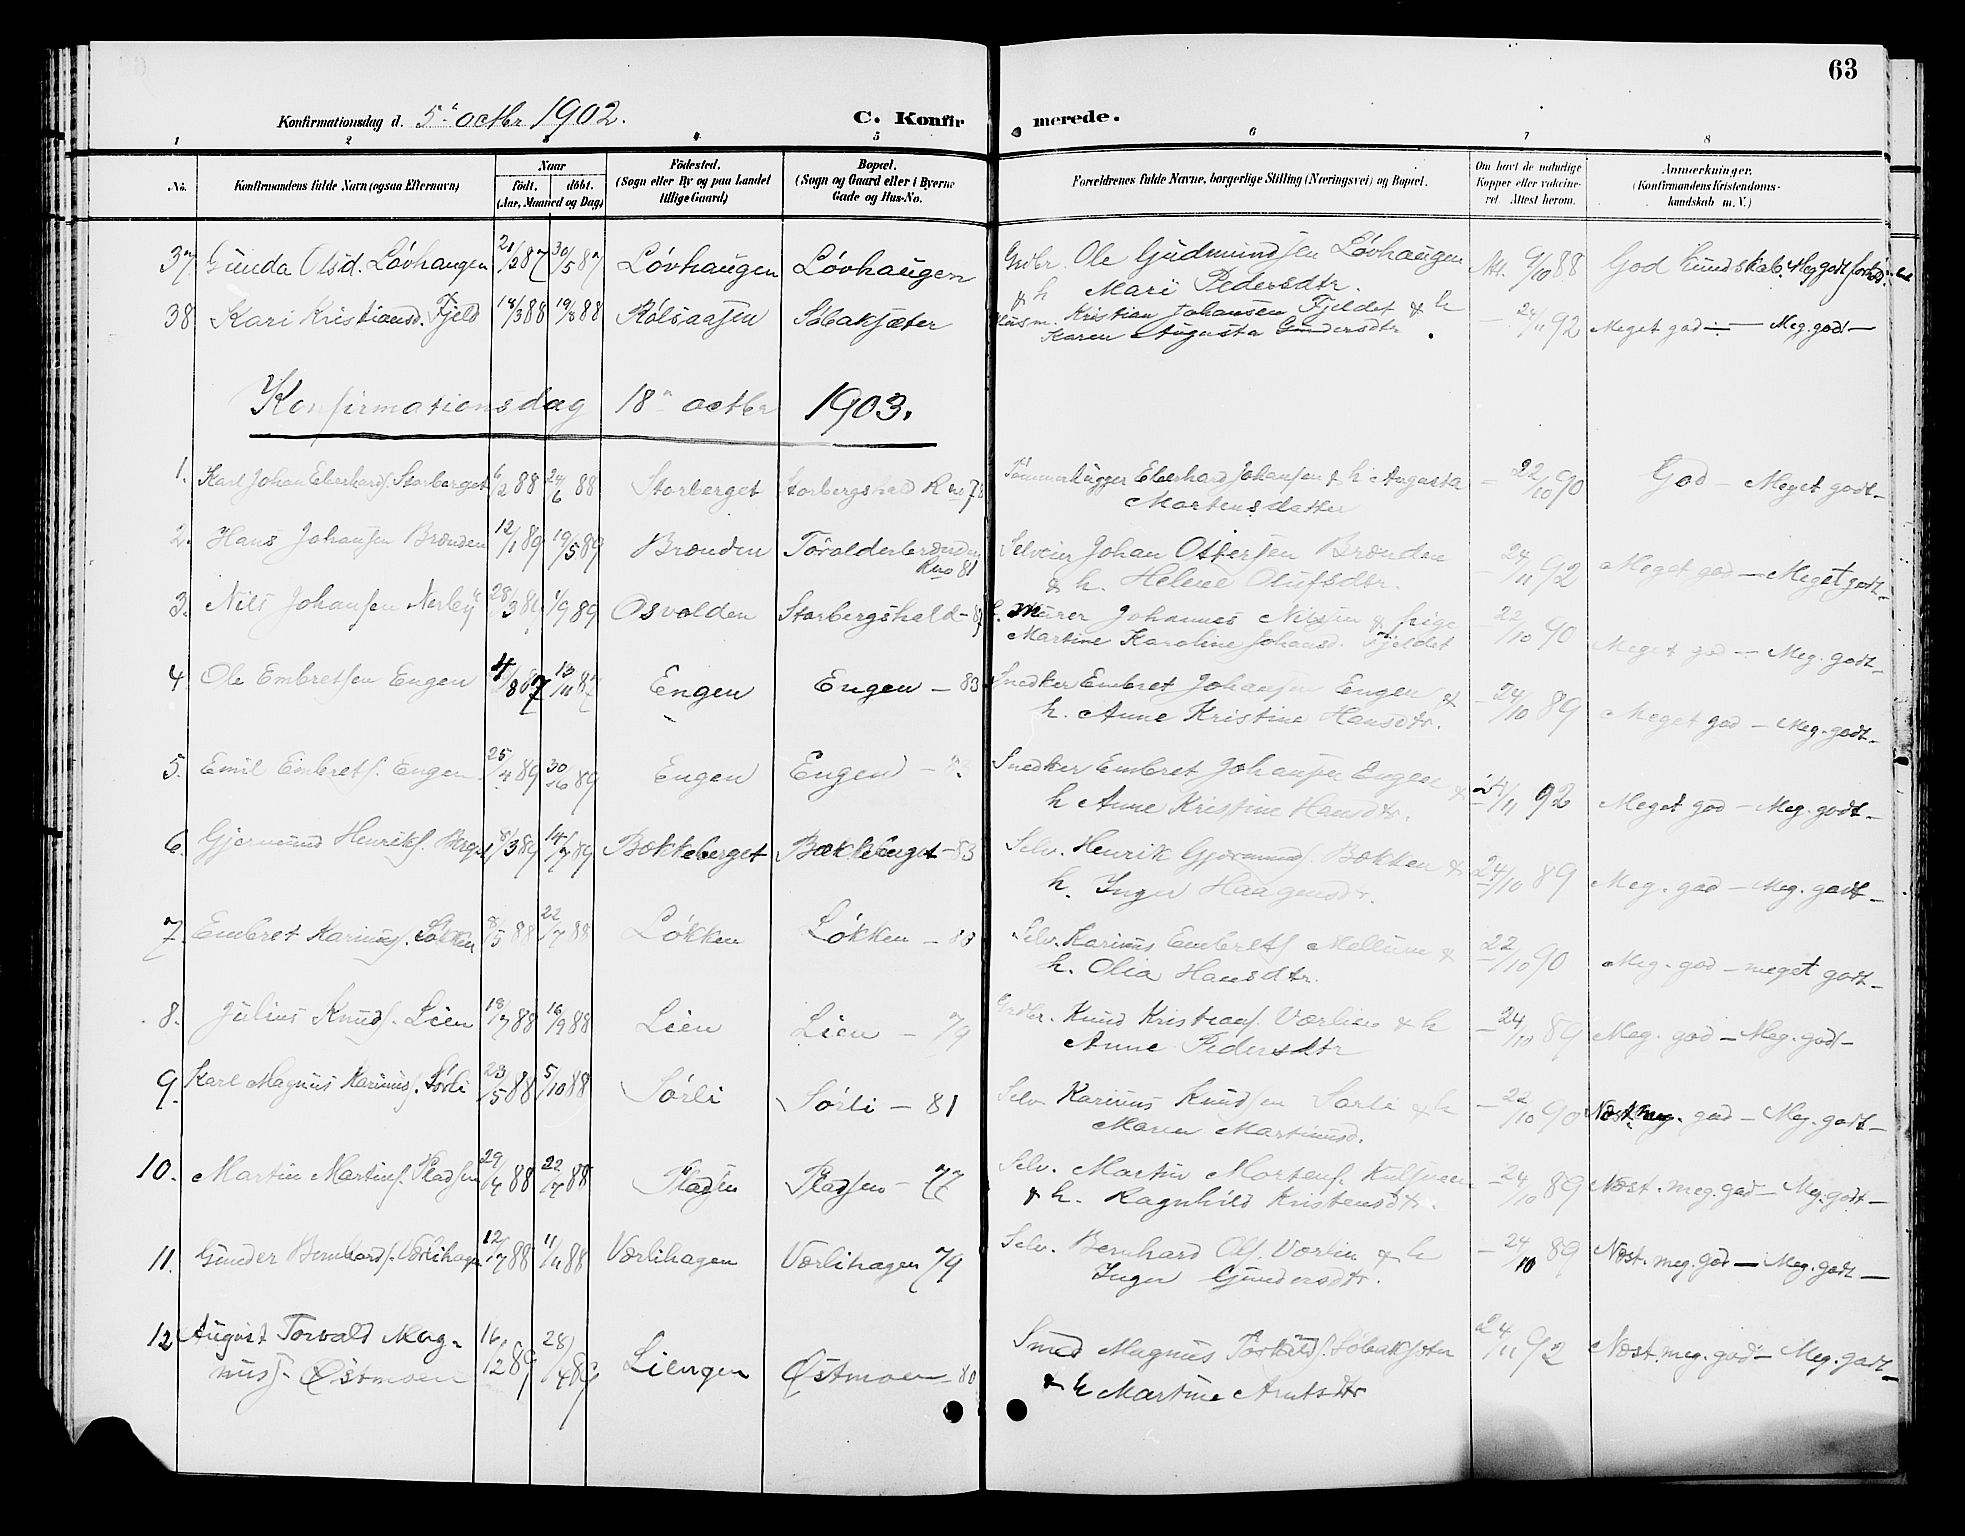 63
Konfirmationsdag d. 5' octbr 1902. C. Konfirmerede.
1 2 3 4 5 6 7 8
No. Konfirmandens fulde Navn (ogsaa Efternavn) Naar födt. döbt. (Aar, Maaned og Dag) Födested. (Sogn eller By og paa Landet tillige Gaard) Bopæl. (Sogn og Gaard eller i Byerne Gade og Hus-No. Forældrenes fulde Navne, borgerlige Stilling (Næringsvei) og Bopæl. Om havt de naturlige Kopper eller vakcineret. Attest herom. Anmærkninger. (Konfirmandens Kristendomskundskab m. V.)
37 Gunda Olsd. Lövhaugen 21/2 87 30/5 87 Lövhaugen Lövhaugen Grdbr. Ole Gudmundsen Lövhaugen Att. 9/10 88 God kundskab. Meg godt forhold.
& h Mari Pedersdtr.
38 Kari Kristiansd. Fjeld 18/3 88 19/8 88 Rölsaasen Söbaksæter Husm. Kristian Johansen Fjeldet & h — 24/11 92 Meget god — Meg. godt —
Karen Augusta Gundersdtr
Konfirmationsdag 18" octbr 1903.
1. Karl Johan Eberhards. Storberget 6/2 88 24/6 88 Storberget Storbergshald R no 78 Tömmerhugger Eberhard Johansen & h Augusta — 22/10 90 God — Meget godt —
Martensdatter
2. Hans Johansen Brænden 12/1 89 19/5 89 Brænden Toralderbrænden Selveier Johan Ottersen Brænden — 24/11 92 Meget god — Meget godt —
Rno 81 & h. Helene Olufsdtr.
3. Nils Johansen Nerby 28/3 89 1/9 89 Osvolden Storbergshald — Murer Johannes Nilsen & pige — 22/10 90 Meget god — Meg. godt —
Martine Karoline Johansd. Fjeldet
4. Ole Embretsen Engen 4/8 87 13/11 87 Engen Engen — 83 Snedker Embret Johansen Engen & — 24/10 89 Meget god — Meg. godt —
h. Anne Kristine Hansdtr.
5. Emil Embrets. Engen 25/4 89 30/6 89 Engen Engen — 83 Snedker Embret Johansen Engen & — 24/11 92 Meget god — Meg. godt —
h Anne Kristine Hansdtr.
6. Gjermund Henriks. Berget 8/3 89 14/7 89 Bækkeberget Bækkeberget — 83 Selv. Henrik Gjermunds. Bækken & — 24/10 89 Meg. god — Meg. godt —
h. Inger Haagensdtr.
7. Embret Karinus. Lökken 8/5 88 22/7 88 Lökken Lökken — 83 Selv. Karinus Embrets. Mellum & — 22/10 90 Meg. god — meget godt —
h. Olia Hansdtr.
8. Julius Knuds. Lien 18/7 88 16/9 88 Lien Lien — 79 Grdbr. Knud Kristians. Værlien & h — 24/10 89 Meg. god — Meg. godt —
Anne Pedersdtr
9. Karl Magnus Karinus. Sörli 23/5 88 5/10 88 Sörli Sörli — 81 Selv. Karinus Knudsen Sörli & h — 22/10 90 Næst. meg. god — Meg. godt —
Maren Martinusd.
10. Martin Martins. Pladsen 29/4 88 22/7 88 Pladsen Pladsen — 77 Selv. Martin Mortens. — 24/10 89 Næst. meg. god — Meg. godt —
& h. Ragnhild Kristensdtr.
11. Gunder Bernhards. Værlihagen 12/7 88 11/11 88 Værlihagen Værlihagen 79 Selv. Bernhard Ols. Værlien & h — 24/10 89 Næst. meg. god — Meg. godt —
Inger Gundersdtr.
12 August Torvald Mag- 16/12 89 28/4 89 Liengen Östmoen — 80 Smed Magnus Torkilds. Söbaksæter 24/11 92 Næst. meg. god — Meg. godt —
nuss. Östmoen & h Martine Arntsdtr